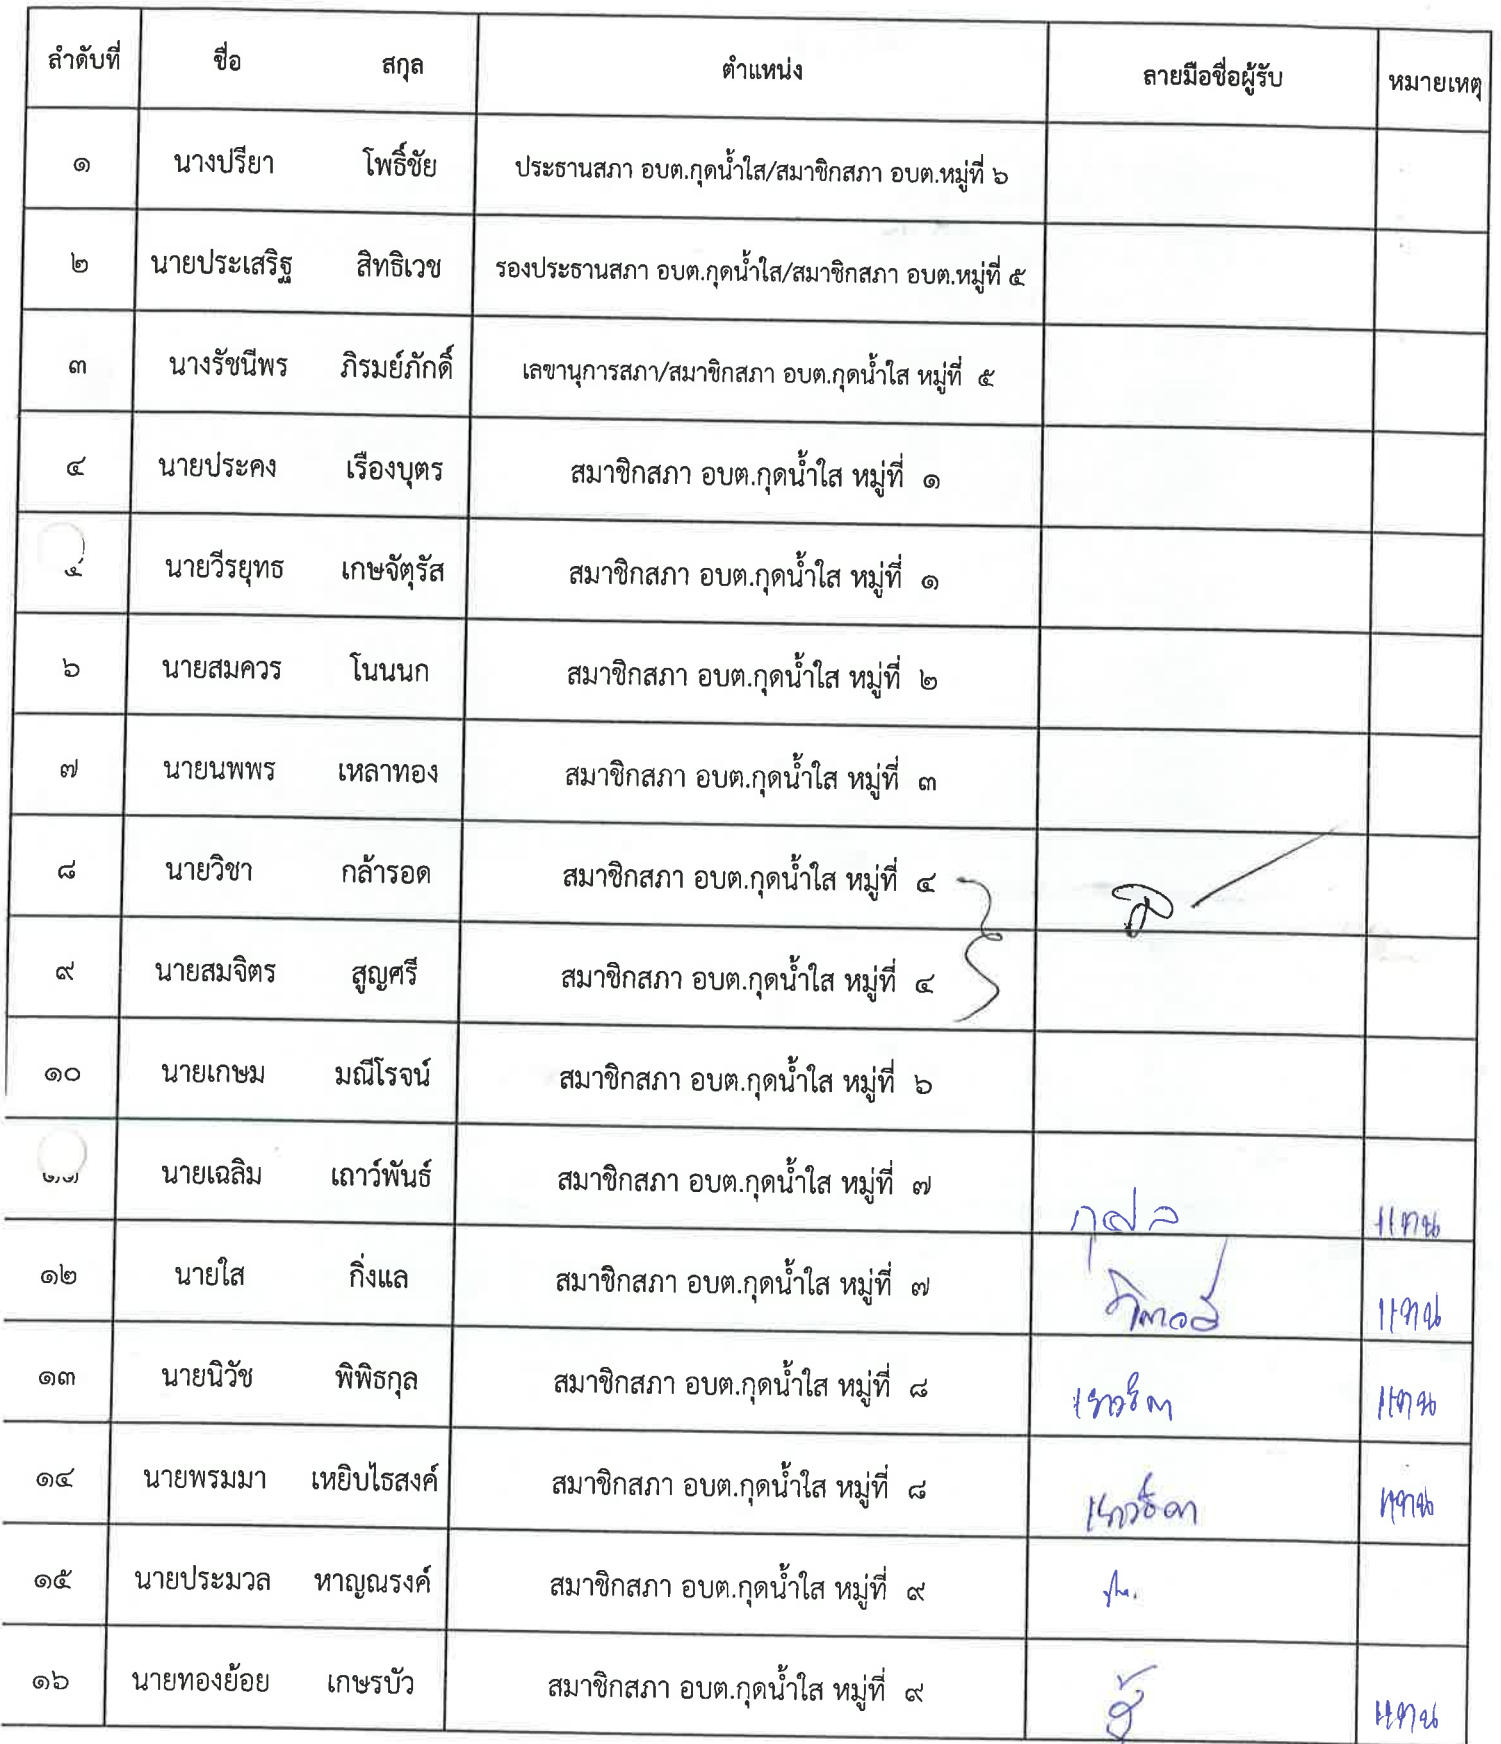 ลำดับที่ ชื่อ สกุล ตำแหน่ง ลายมือชื่อผู้รับ หมายเหตุ
๑ นางปรียา โพธิ์ชัย ประธานสภา อบต.กุดน้ำใส/สมาชิกสภา อบต.หมู่ที่ ๖
๒ นายประเสริฐ สิทธิเวช รองประธานสภา อบต.กุดน้ำใส/สมาชิกสภา อบต.หมู่ที่ ๕
๓ นางรัชนีพร ภิรมย์ภักดิ์ เลขานุการสภา/สมาชิกสภา อบต.กุดน้ำใส หมู่ที่ ๕
๔ นายประคง เรืองบุตร สมาชิกสภา อบต.กุดน้ำใส หมู่ที่ ๑
๕ นายวีรยุทธ เกษจัตุรัส สมาชิกสภา อบต.กุดน้ำใส หมู่ที่ ๑
๖ นายสมควร โนนนก สมาชิกสภา อบต.กุดน้ำใส หมู่ที่ ๒
๗ นายนพพร เหลาทอง สมาชิกสภา อบต.กุดน้ำใส หมู่ที่ ๓
๘ นายวิชา กล้ารอด สมาชิกสภา อบต.กุดน้ำใส หมู่ที่ ๔
๙ นายสมจิตร สูญศรี สมาชิกสภา อบต.กุดน้ำใส หมู่ที่ ๔
๑๐ นายเกษม มณีโรจน์ สมาชิกสภา อบต.กุดน้ำใส หมู่ที่ ๖
๑๑ นายเฉลิม เถาว์พันธ์ สมาชิกสภา อบต.กุดน้ำใส หมู่ที่ ๗ กุศล แทน
๑๒ นายใส กิ่งแล สมาชิกสภา อบต.กุดน้ำใส หมู่ที่ ๗ แทน
๑๓ นายนิวัช พิพิธกุล สมาชิกสภา อบต.กุดน้ำใส หมู่ที่ ๘ แทน
๑๔ นายพรมมา เหยิบไธสงค์ สมาชิกสภา อบต.กุดน้ำใส หมู่ที่ ๘ แทน
๑๕ นายประมวล หาญณรงค์ สมาชิกสภา อบต.กุดน้ำใส หมู่ที่ ๙
๑๖ นายทองย้อย เกษรบัว สมาชิกสภา อบต.กุดน้ำใส หมู่ที่ ๙ แทน